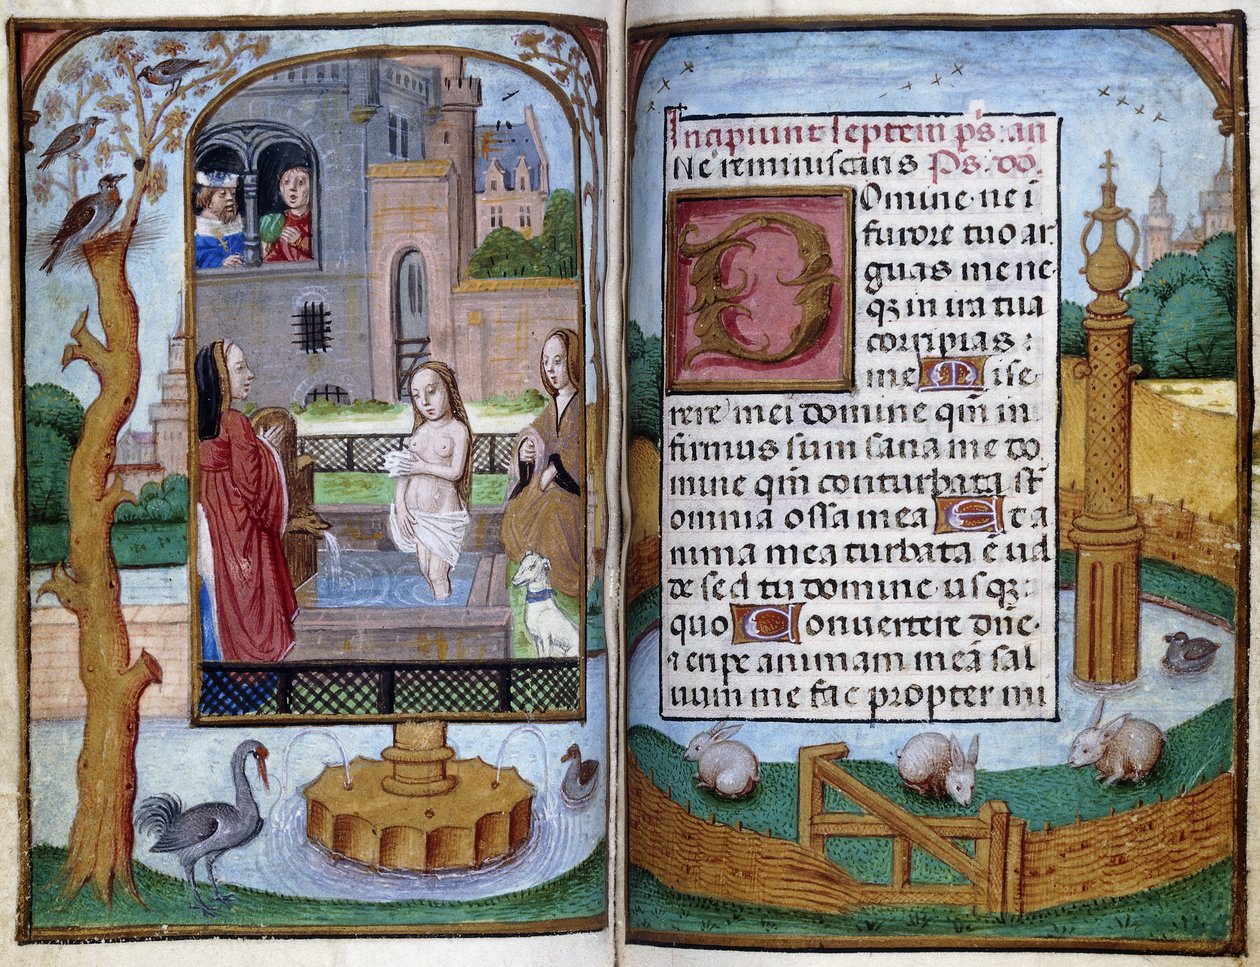 Incipiunt septem ps: an
Ne reminiscaris Ps: dd
Domine ne i
furore tuo ar
guas me ne
qz in ira tua
corripias:
me Mise
rere mei domine qm in
firmus sum sana me do
mine qm conturbata st
omnia ossa mea Et a
nima mea turbata e ual
de sed tu domine usqz
quo Conuertere dne
et eripe animam mea sal
uum me fac propter mi